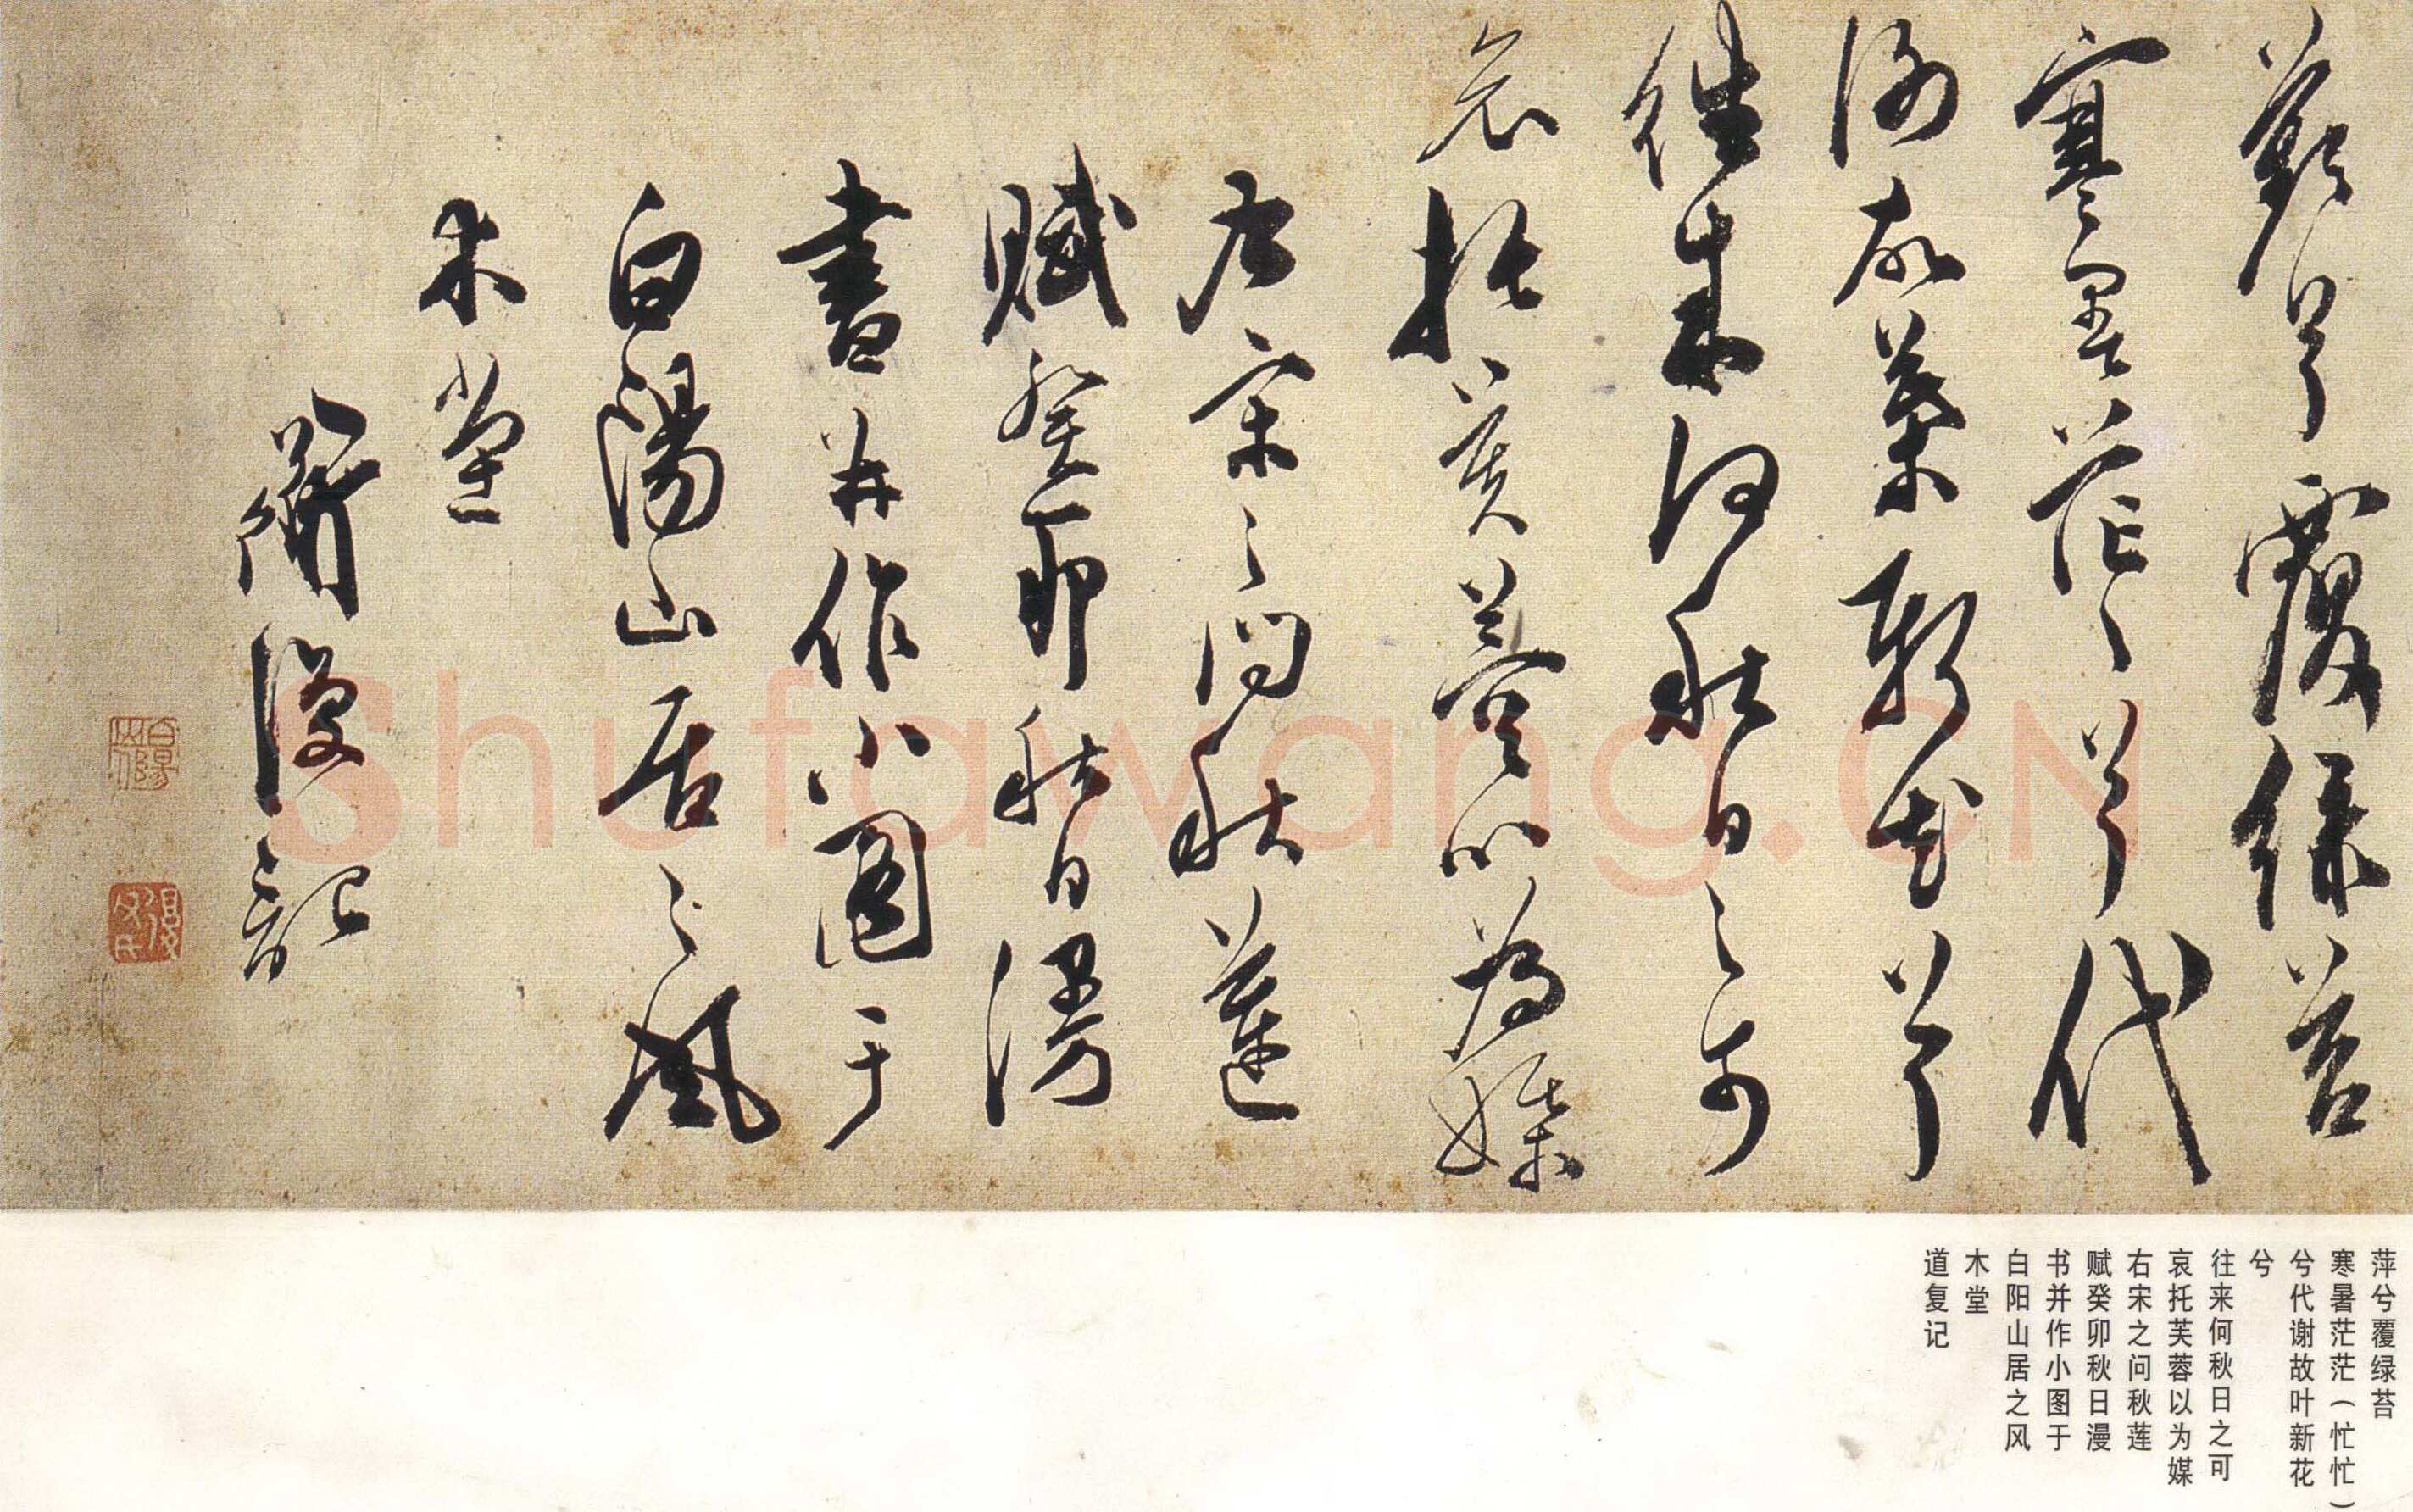 蘋兮覆緑苔
寒暑茫々兮代
謝故葉新花兮
往来何秋日之可
哀托芙蓉以為媒
右宋之问秋蓮
賦癸卯秋日漫
書并作小圖于
白陽山居之風
木堂
道復記
白陽山人
復父氏
Shufawang.CN
萍兮覆绿苔
寒暑茫茫（忙忙）
兮代谢故叶新花
兮
往来何秋日之可
哀托芙蓉以为媒
右宋之问秋莲
赋癸卯秋日漫
书并作小图于
白阳山居之风
木堂
道复记